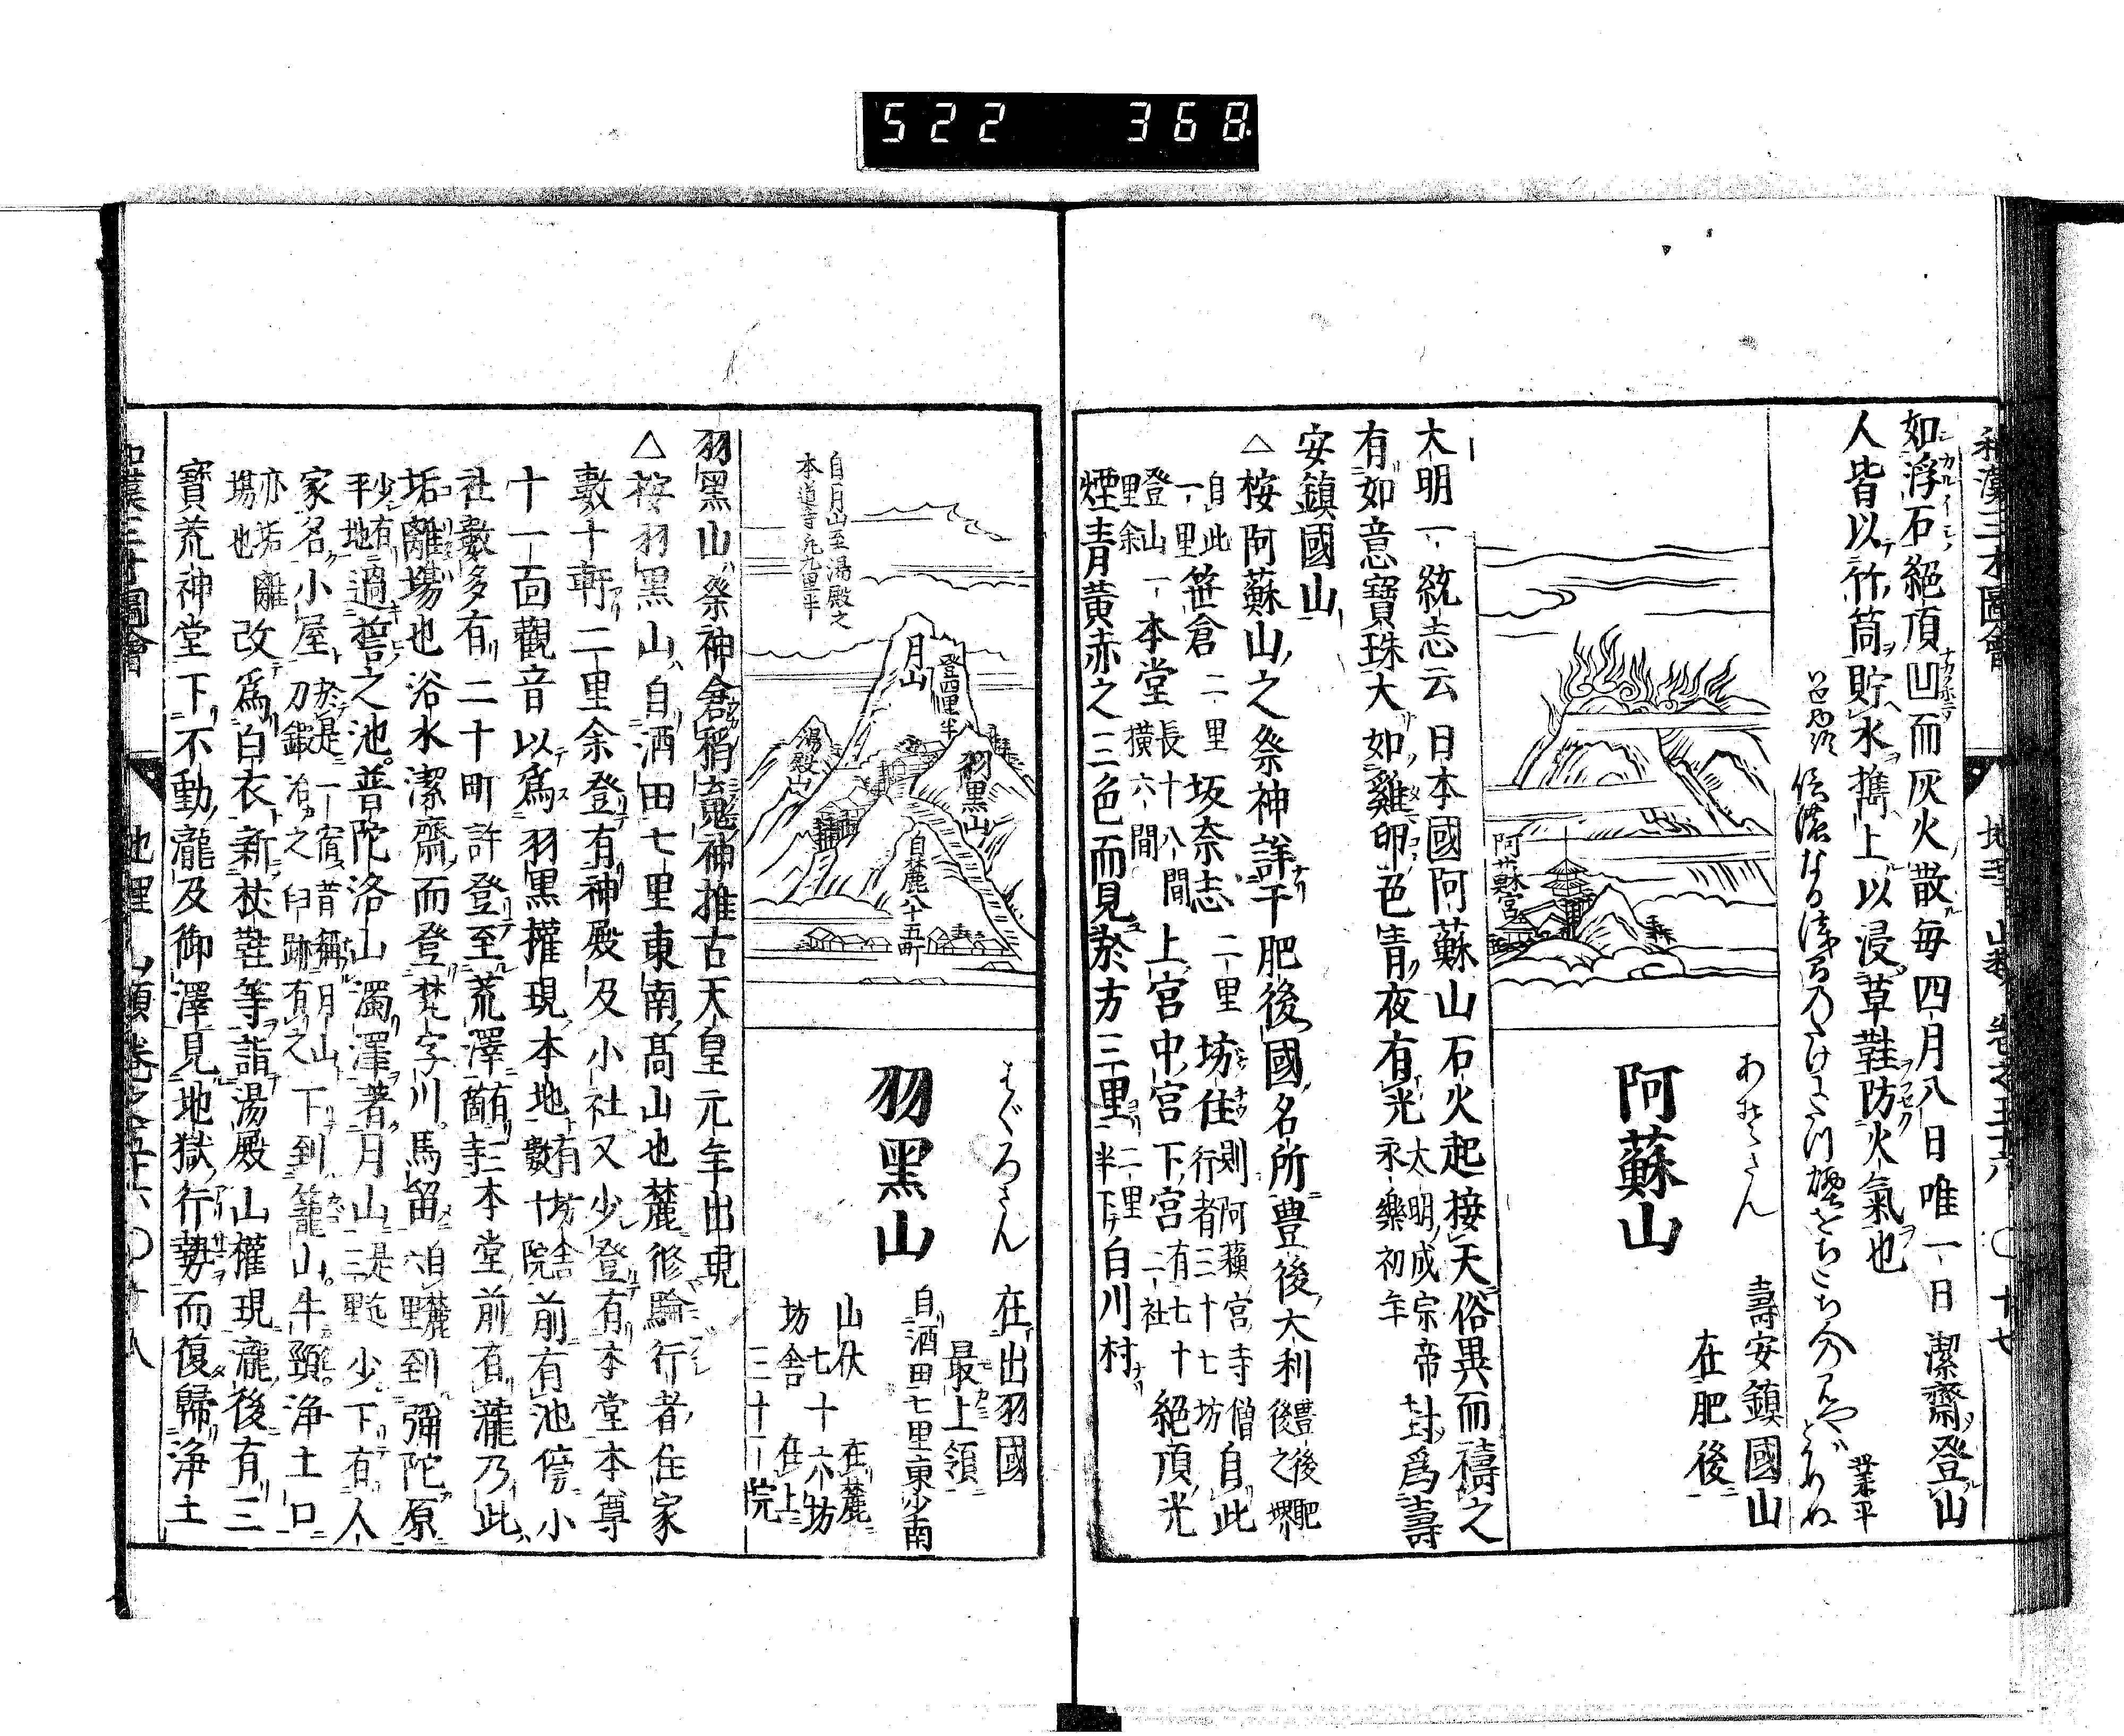 522 368.
和漢三才圖會 地理 山類 卷之五十六 〇十七
如浮石絕頂凹而灰火散每四月八日唯一日潔齋登山
人皆以竹筒貯水携上以浸草鞋防火氣也
信濃なる淺間のたけに
業平
阿蘇宮
あそさん
阿蘇山
壽安鎮國山
在肥後
大明一統志云日本國阿蘇山石火起接天俗異而禱之
有如意寶珠大如雞卵色青夜有光 太明成宗帝封爲壽
永樂初年
安鎮國山
△按阿蘇山之祭神詳于肥後國名所豊後大利 豊後肥
後之堺
自此一里笹倉二里坂奈志二里坊住 則阿蘓宮寺僧
行者三十七坊 自此
登山一里余本堂 長十八間
橫六間 上宮中宮下宮 有七十
二社 絕頂光
煙青黃赤之三色而見於方三里 二里
半下 白川村
自月山至湯殿之
本道寺凢九里半
月山
登四里半
湯殿山
羽黑山
自麓八十五町
はぐろさん
羽黑山
在出羽國
最上領
自酒田七里東少南
山伏
七十六坊 在麓
坊舍
三十一院 在上
羽黑山祭神倉稻䰠神推古天皇元年出現
△按羽黑山自酒田七里東南髙山也麓修驗行者住家
數十軒二里余登有神殿及小社又少登有本堂本尊
十一面觀音以爲羽黑權現本地 有坊舍
數十院 前有池傍小
社數多有二十町許登至荒澤 有三
箇寺 本堂前有瀧乃此
垢離塲也浴水潔齋而登梵字川馬留 自麓
六里 到彌陀原
少有
平地 過誓之池普陀洛山濁澤著月山 是迄
三里 少下有人
家名小屋 於是一宿昔稱月山
刀鍛冶之臼跡有之 下到籠山牛頸淨土口
亦垢離
塲也 改爲白衣新杖鞋等詣湯殿山權現瀧後有三
寶荒神堂下不動瀧及御澤見地獄行勢而復歸淨土
和漢三才圖會 地理 山類 卷之五十六 〇十八